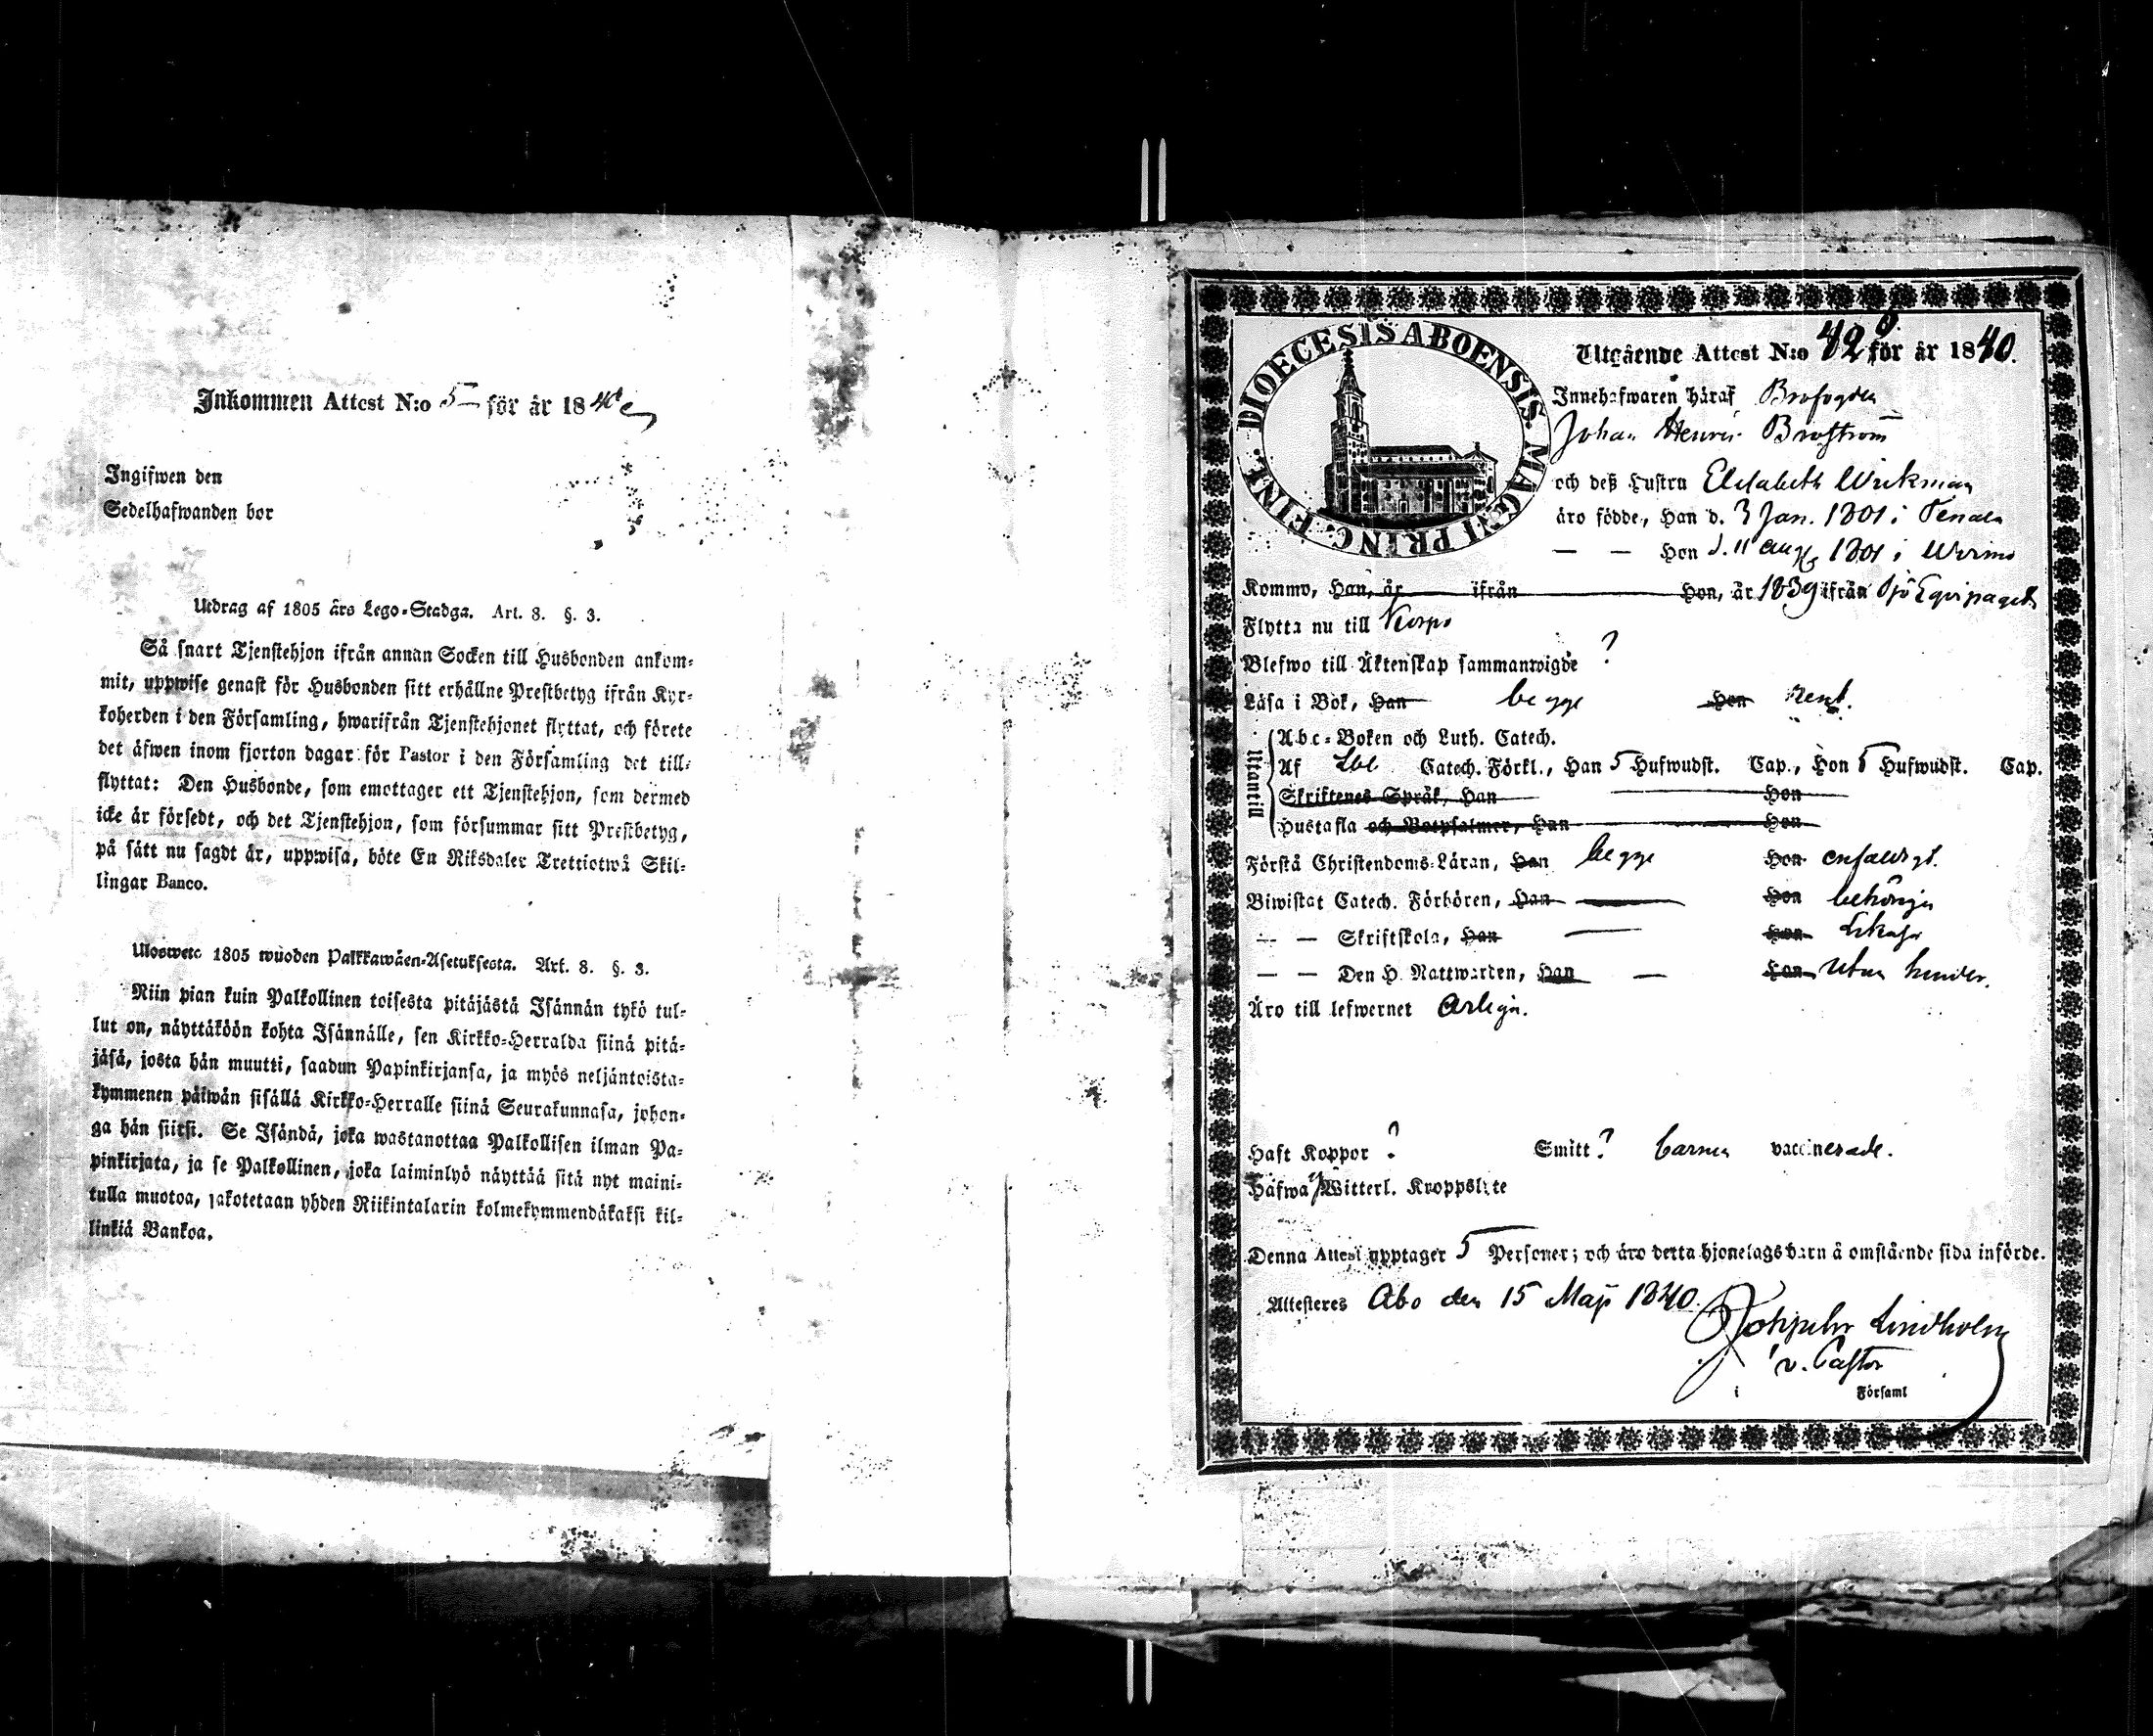 Inkommen Attest N:o 5 för år 1840
Ingifwen den
Sedelhafwanden bor
Utdrag af 1805 års Lego-Stadga. Art. 8. §. 3.
Så snart Tjenstehjon ifrån annan Socken till Husbonden ankom-
mit, uppwise genast för Husbonden sitt erhållne Prestbetyg ifrån Kyr-
koherden i den Församling, hwarifrån Tjenstehjonet flyttat, och förete
det äfwen inom fjorton dagar för Pastor i den Församling det till-
flyttat: Den Husbonde, som emottager ett Tjenstehjon, som dermed
icke är försedt, och det Tjenstehjon, som försummar sitt Prestbetyg,
på sätt nu sagdt är, uppwisa, böte En Riksdaler Trettiotwå Skil-
lingar Banco.
Ulosweto 1805 wuoden Palkkawäen-Asetuksesta. Art. 8. §. 3.
Niin pian kuin Palkollinen toisesta pitäjästä Isännän tykö tul-
lut on, näyttäköön kohta Isännälle, sen Kirkko-Herralda siinä pitä-
jäsä, josta hän muutti, saadun Papinkirjansa, ja myös neljäntoista-
kymmenen päiwän sisällä Kirkko-Herralle siinä Seurakunnasa, johon-
ga hän siirsi. Se Isändä, joka wastanottaa Palkollisen ilman Pa-
pinkirjata, ja se Palkollinen, joka laiminlyö näyttää sitä nyt maini-
tulla muotoa, sakotetaan yhden Riikintalarin kolmekymmendäkaksi kil-
linkiä Bankoa.
DIOECESIS ABOENSIS MAGNI PRINC. FINL.
Utgående Attest N:o 42 för år 1840.
Innehafwaren häraf Brofogden
Johan Henric Broström
och deß Hustru Elisabeth Wirkman
äro födde, Han d. 3 Jan. 1801 i Tenala
— — Hon d. 11 aug. 1801 i Wirmo
Kommo, Han, år ifrån Hon, år 1839 ifrån Sjö Equipaget
Flytta nu till Korpo
Blefwo till Äktenskap sammanwigde ?
Läsa i Bok, Han begge Hon rent.
Utantill
Abc-Boken och Luth. Catech.
Af Catech. Förkl., Han 5 Hufwudst. Cap., Hon 5 Hufwudst. Cap.
Skriftenes Språk, Han Hon
Hustafla och Botpsalmer, Han Hon
Förstå Christendoms-Läran, Han begge Hon enfaldigt.
Biwistat Catech. Förhören, Han — Hon behörigen
— — Skriftskola, Han — Hon likaså
— — Den H. Nattwarden, Han — Hon utan hinder.
Äro till lefwernet ärliga.
Haft Koppor ? Smitt ? barnen vaccinerade.
Hafwa ej Witterl. Kroppslyte
Denna Attest upptager 5 Personer; och äro detta hjonelags barn å omstående sida införde.
Attesteres Åbo den 15 Maji 1840.
Lindholm
v. Pastor
i Församl